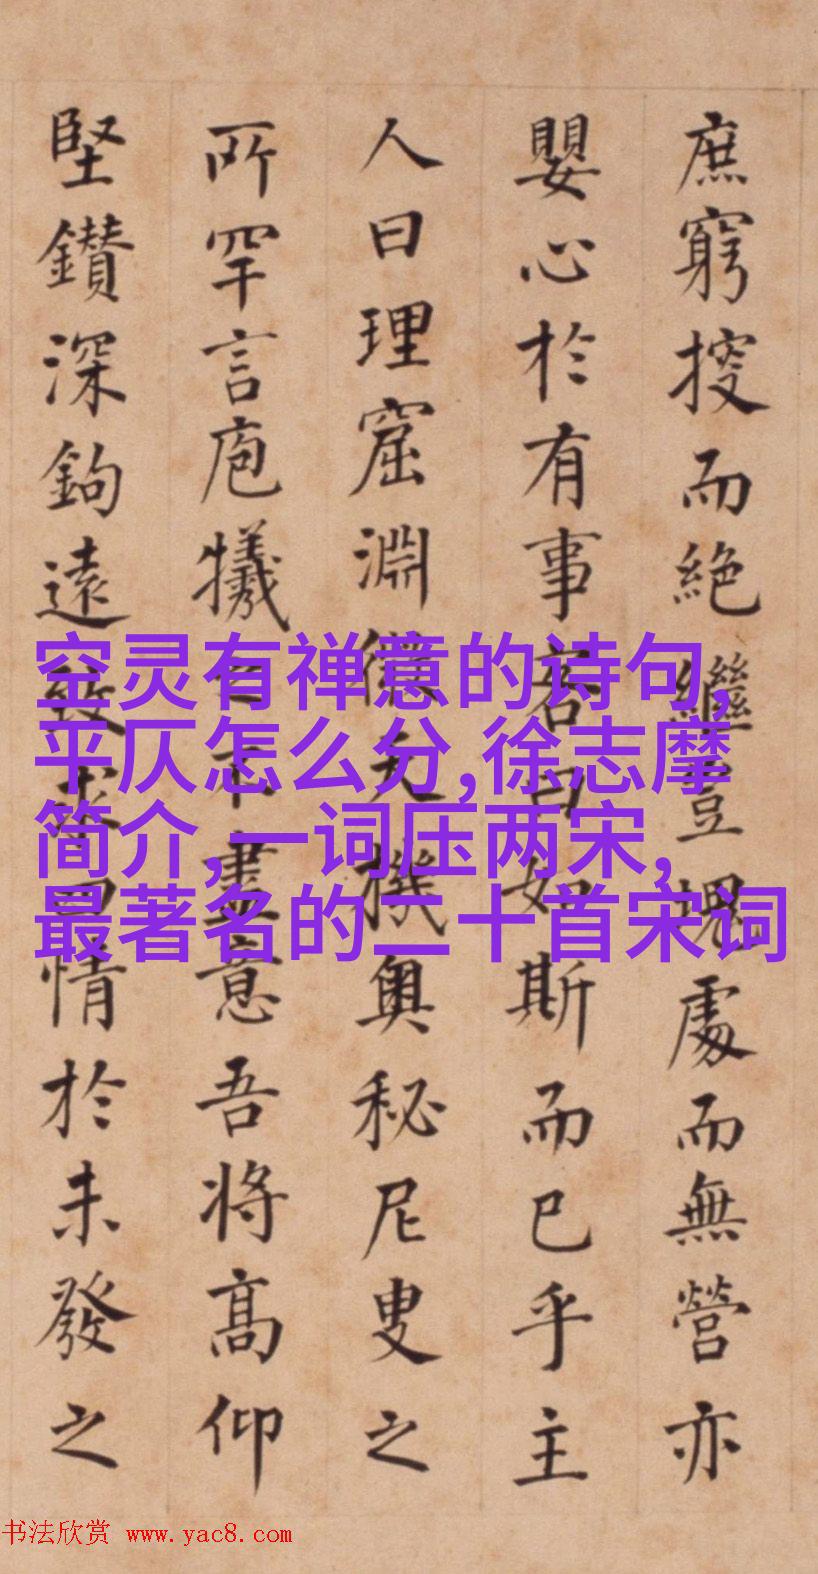 庶窮搜而絶繼豈塊處而無營亦
嬰心於有事客曰如斯而已乎主
人曰理窟淵微天機奧秘尼叟之
所罕言庖犧不盡意吾將高仰
堅鑽深鉤遠致情於未發之
空灵有禅意的诗句,
平仄怎么分,徐志摩
简介,一词压两宋,
最著名的二十首宋词
书法欣赏 www.yac8.com